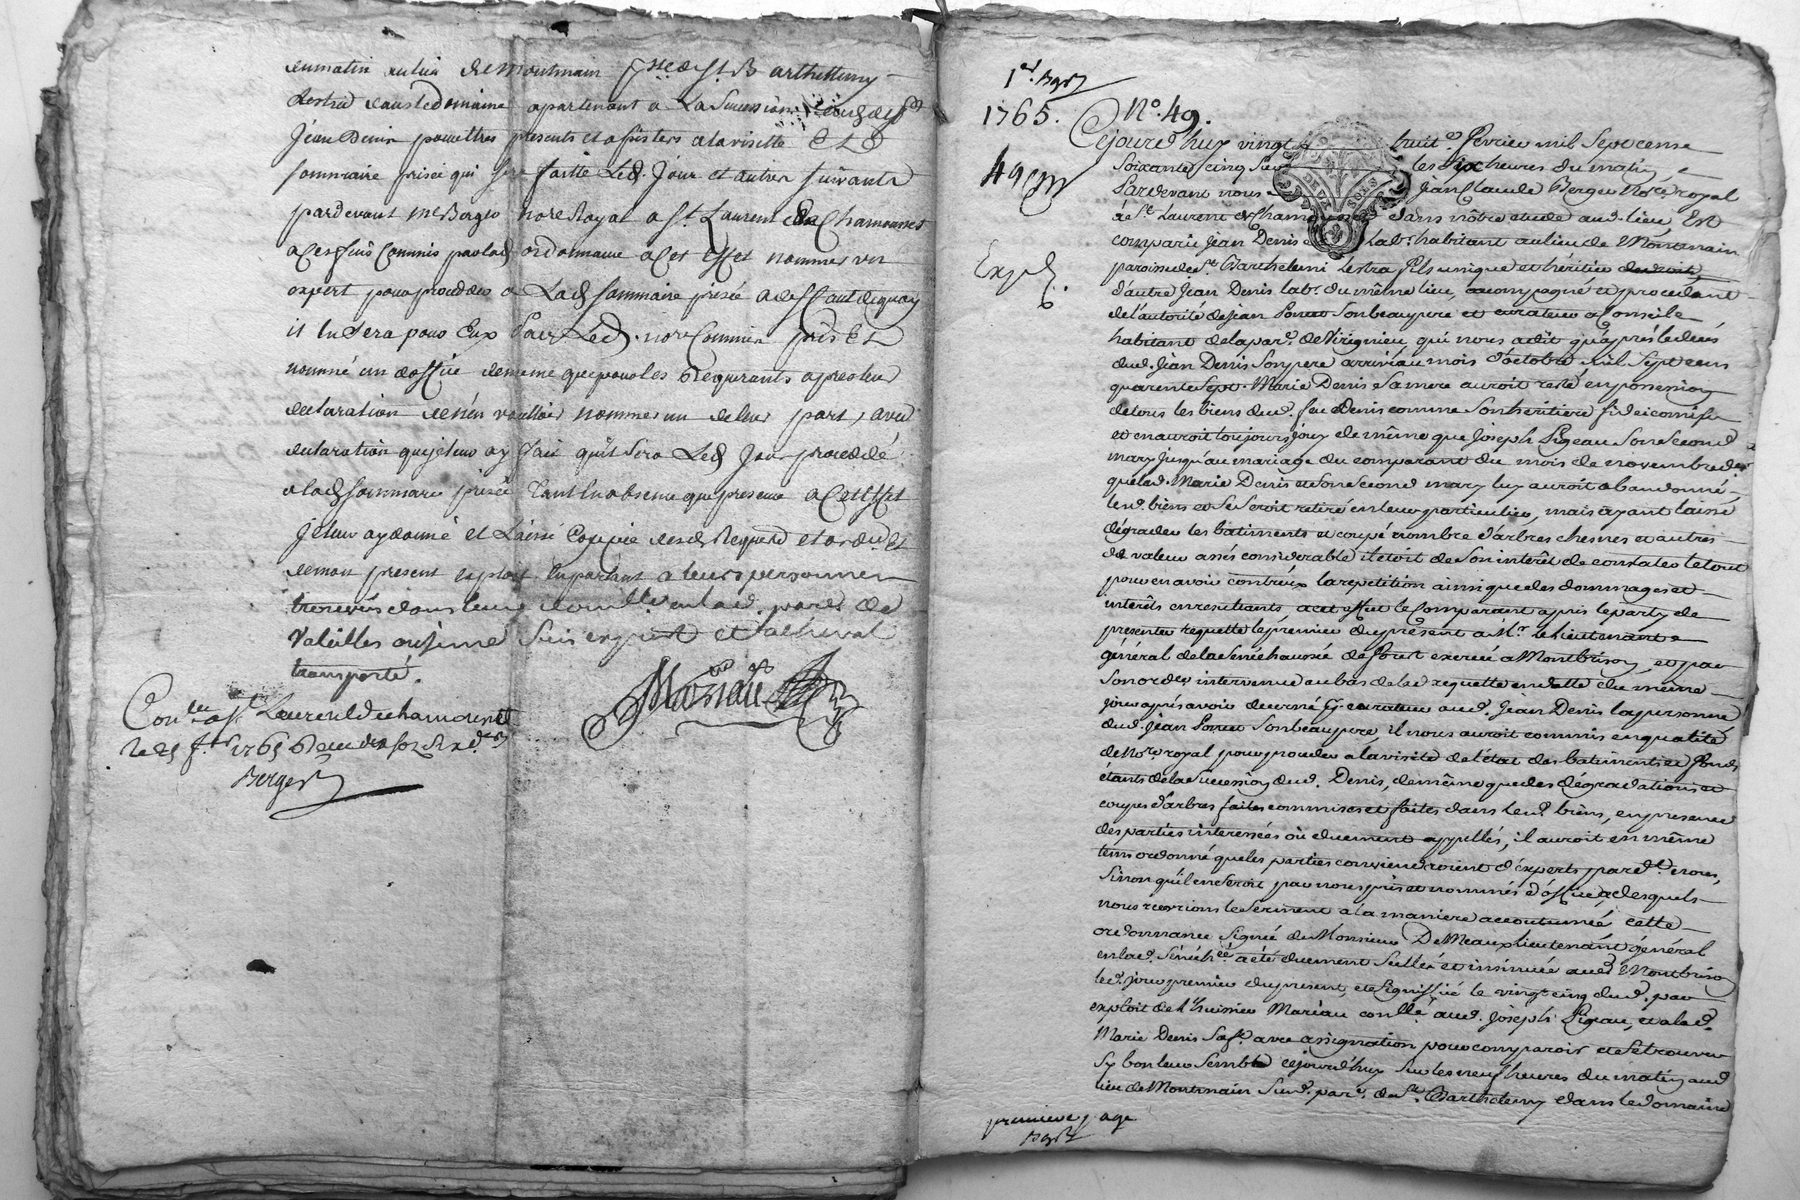 du matin au lieu de Montmain psse de St Barthellemy
Lestra dans le domaine apartenant a La Succession dud deft
Jean Denis pour êtres presents et assister a la visitte et
sommaire prisée qui sera faitte Led. Jour et autres suivants
pardevant me Berger nore Royal a St Laurent de Chamousset
a ces fins Commis par lad ordonnance a cet effet nommer un
expert pour proceder a Lad sommaire prisée a deffaut de quoy
il en sera pour Eux par Led. nore Commis pris et
nommé un d'office de meme que pour les Requerants apres leur
declaration de n'en vouloir nommer un de leur part, avec
declaration que je leur ay fait qu'il sera Led Jour procedé
a lad sommaire prisée tant en absence que presence a cet effet
je leur ay donné et Laissé Coppie desd Requete et ordce Et
de mon present exploit en parlant a leurs personnes
trouvés dans leur domicille en lad. parse de
Valeilles ou je me suis exprest et a cheval
transporté.
Mariau
Conlle a St Laurent de chamousset
le 25 f.er 1765
Berger
1er. Bger
1765. No. 49.
49
Exp.
DEUX SOLS
Cejourd'huy vingt huit fevrier mil sept cens
soixante cinq sur les dix heures du matin,
Pardevant nous Jean Claude Berger Nore royal
de St Laurent de Chamousset dans nôtre etude aud. lieu, Est
comparu Jean Denis labr habitant au lieu de Montmain
paroisse de St Barthelemi Lestra fils unique et héritier
d'autre Jean Denis labr du même lieu, accompagné et procedant
de l'autorité de Jean Poncet son beaupere et curateur a Conseils
habitant de la parse de Virignieu qui nous a dit qu'après le decés
dud. Jean Denis son pere arrivé au mois d'octobre mil sept cens
quarente sept. Marie Denis sa mere auroit resté en possession
de tous les biens dud. feu Denis comme son heritiere fideicomise
et en auroit toujours jouy de même que Joseph Pigeau son second
mary jusqu'au mariage du comparant du mois de novembre dernier
que lad. Marie Denis et son second mary luy auroit abandonné
led. biens et se seroit retiré en leur particulier, mais ayant laissé
dégrader les batiments et coupé nombre d'arbres chesnes et autres
de valeur assés considerable il etoit de son intérêt de constater le tout
pour en avoir contr'eux la repetition ainsi que des dommages et
intérêts en resultants a cet effet le Comparant a pris le party de
presenter requette le premier du present à Mr le lieutenant
général de la Sénéchaussée de forest exercée a Montbrison, et par
son ordce intervenue au bas de lad requette en datte du meme
jour après avoir decerné pr curateur aud. Jean Denis la personne
dud. Jean Poncet son beaupere, il nous auroit commis en qualité
de Nore royal pour proceder a la visite de l'état des batiments et fonds
étants de la Succession dud. Denis, de même que des dégradations et
coupes d'arbres faites commises et faites dans led. biens, en presence
des parties interessées ou duement appellés, il auroit en même
tems ordonné que les parties conviendroient d'experts pard. nous,
sinon qu'il en seroit par nous pris et nommés d'office desquels
nous recevrions le serment a la maniere accoutumée, cette
ordonnance signée de Monsieur De Meaux lieutenant général
en lad. Sénéchée a été duement scellée et insinuée aud Montbrison
led. jour premier du present, et signifiée le vingt cinq dud. par
exploit de l'huissier Mariau conllé aud. Joseph Pigeau, et a lad.
Marie Denis sa fe avec assignation pour comparoir et se trouver
sy bon leur semble cejourd'huy sur les neuf heures du matin aud
lieu de Montmain sud. parse de St Barthelemy dans le domaine
premiere page
Bger